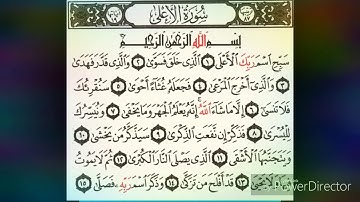 سُورَةُ الْأَعْلَىٰ
بِسْمِ اللَّهِ الرَّحْمَٰنِ الرَّحِيمِ
سَبِّحِ اسْمَ رَبِّكَ الْأَعْلَى ١ الَّذِي خَلَقَ فَسَوَّىٰ ٢ وَالَّذِي قَدَّرَ فَهَدَىٰ
٣ وَالَّذِي أَخْرَجَ الْمَرْعَىٰ ٤ فَجَعَلَهُ غُثَاءً أَحْوَىٰ ٥ سَنُقْرِئُكَ
فَلَا تَنسَىٰ ٦ إِلَّا مَا شَاءَ اللَّهُ إِنَّهُ يَعْلَمُ الْجَهْرَ وَمَا يَخْفَىٰ ٧ وَنُيَسِّرُكَ
لِلْيُسْرَىٰ ٨ فَذَكِّرْ إِن نَّفَعَتِ الذِّكْرَىٰ ٩ سَيَذَّكَّرُ مَن يَخْشَىٰ ١٠
وَيَتَجَنَّبُهَا الْأَشْقَى ١١ الَّذِي يَصْلَى النَّارَ الْكُبْرَىٰ ١٢ ثُمَّ لَا يَمُوتُ
فِيهَا وَلَا يَحْيَىٰ ١٣ قَدْ أَفْلَحَ مَن تَزَكَّىٰ ١٤ وَذَكَرَ اسْمَ رَبِّهِ فَصَلَّىٰ ١٥
PowerDirector